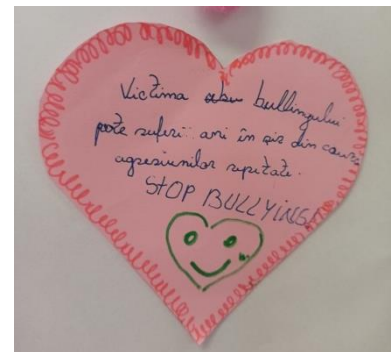 Victima bullingului
pote suferi ani în șir din cauza
agresiunilor repetate.
STOP BULLYING!